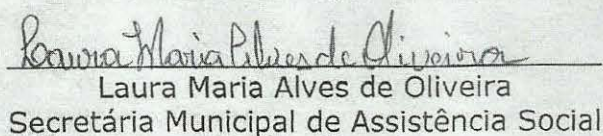 Laura Maria Alves de Oliveira
Laura Maria Alves de Oliveira
Secretária Municipal de Assistência Social